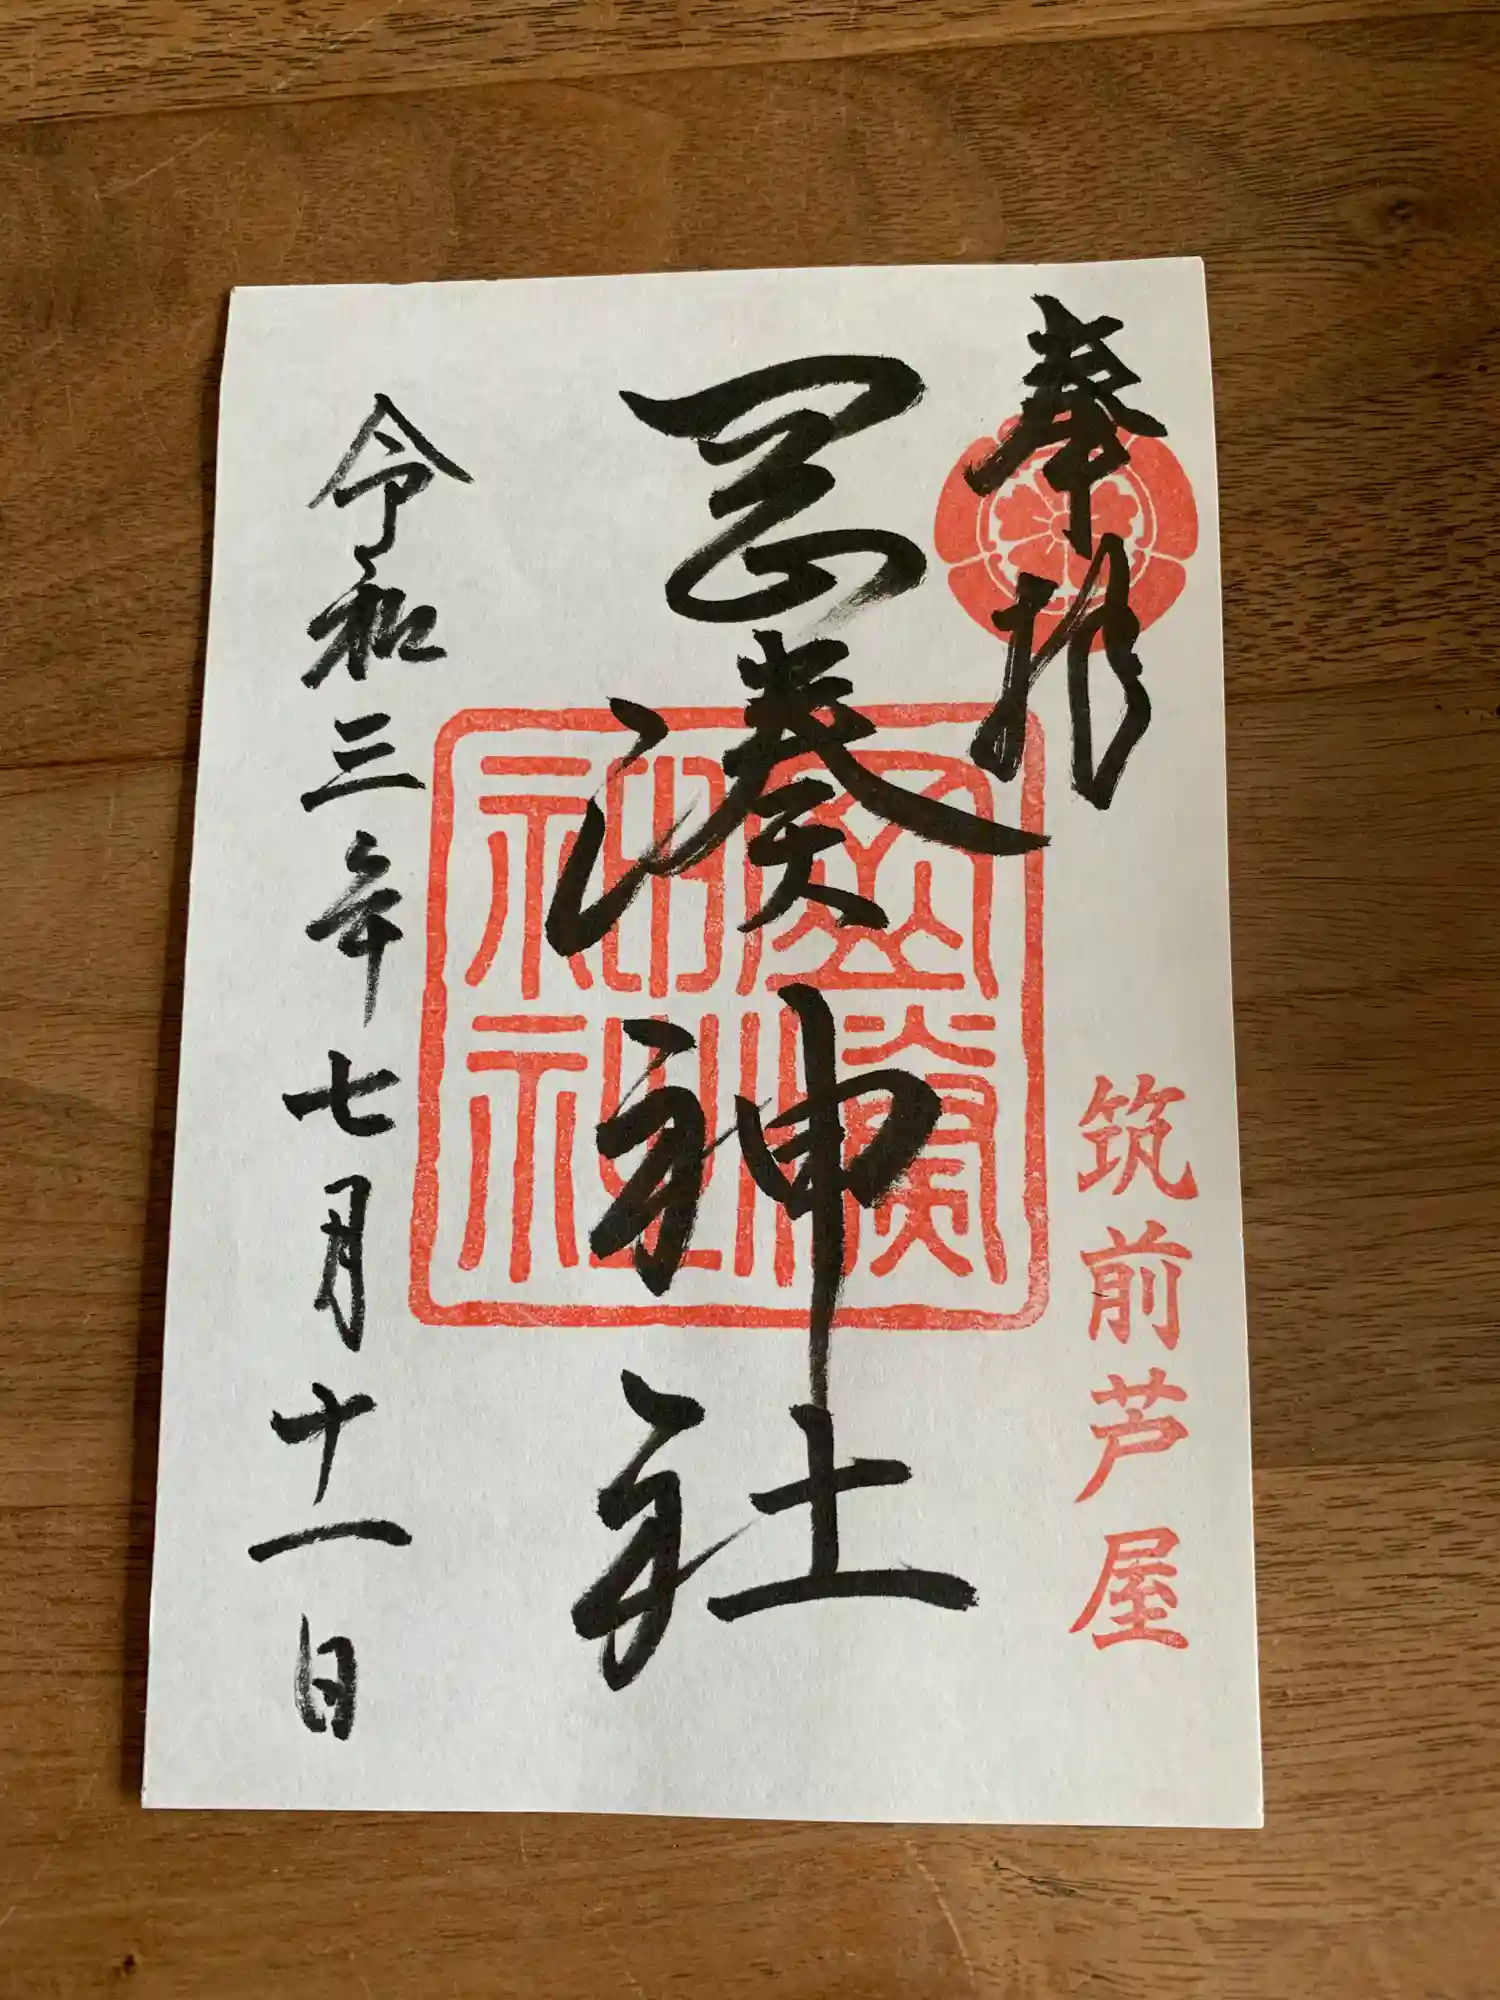 奉拝
筑前芦屋
岡湊神社
岡湊神社
令和三年七月十一日